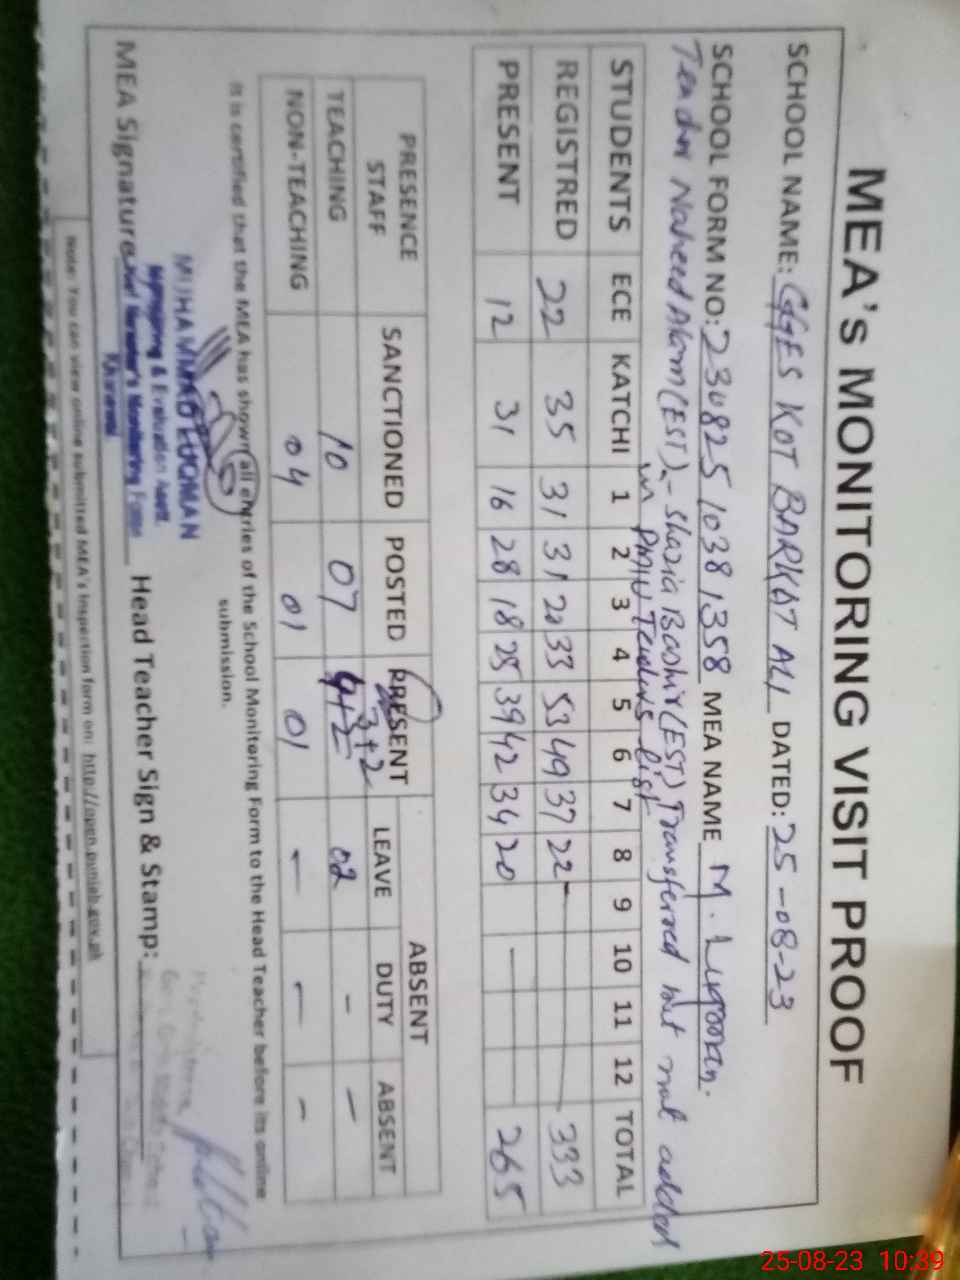 MEA's MONITORING VISIT PROOF
SCHOOL NAME: GGES KOT BARKAT ALI DATED: 25-08-23
SCHOOL FORM NO: 230825 1038 1358 MEA NAME M. Luqman.
Teacher Naheed Alam (EST), - Shazia Bashir (EST) Transferred but not added
in PMIU Teachers list
STUDENTS ECE KATCHI 1 2 3 4 5 6 7 8 9 10 11 12 TOTAL
REGISTRED 22 35 31 31 20 33 53 49 37 22 333
PRESENT 12 31 16 28 18 25 39 42 34 20 265
PRESENCE STAFF SANCTIONED POSTED PRESENT ABSENT
LEAVE DUTY ABSENT
TEACHING 10 07 3+2 02 - -
NON-TEACHING 04 01 01 - - -
It is certified that the MEA has shown all entries of the School Monitoring Form to the Head Teacher before its online
submission.
MUHAMMAD LUQMAN
Monitoring & Evaluation Asstt.
Monitoring Force
MEA Signature Head Teacher Sign & Stamp:
Note: You can view online submitted MEA's Inspection form on: http://open.punjab.gov.pk
25-08-23 10:39